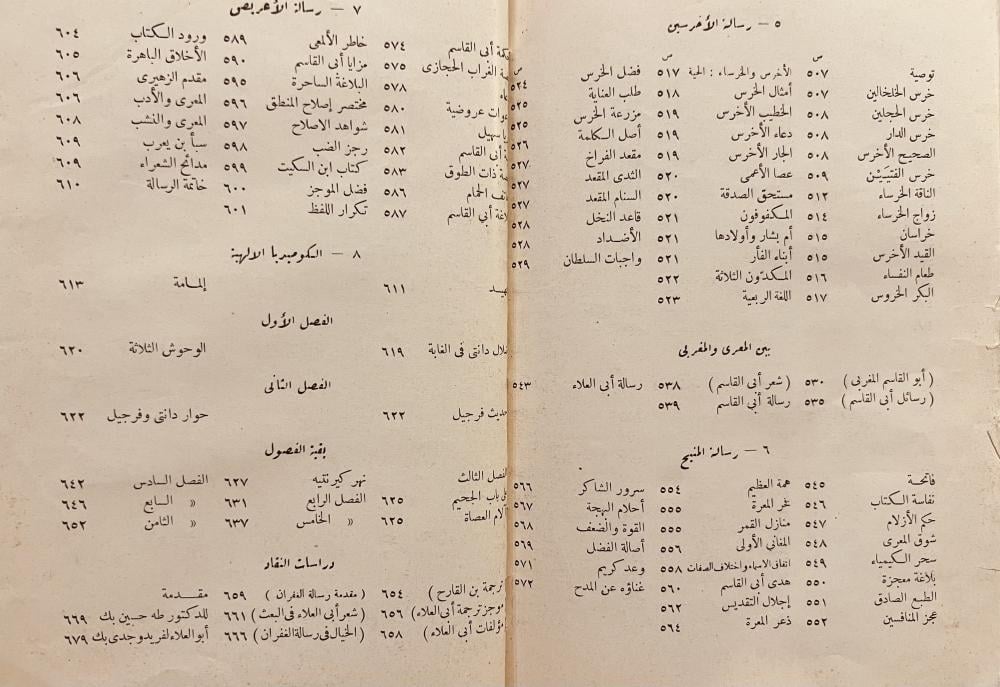 ٥ — رسالة الأخرسين
ص ص ص
توصية ٥٠٧ الأخرس والخرساء : الحية ٥١٧ فضل الخرس ٥٢٤
خرس الخلخالين ٥٠٧ أمثال الخرس ٥١٨ طلب العناية ٥٢٥
خرس الحجلين ٥٠٨ الخطيب الأخرس ٥١٩ مزرعة الخرس ٥٢٥
خرس الدار ٥٠٨ دعاء الأخرس ٥١٩ أصل الكلمة ٥٢٦
الصحيح الأخرس ٥٠٨ الجار الأخرس ٥١٩ مقعد الفراخ ٥٢٧
خرس الفتيَيْن ٥٠٩ عصا الأعمى ٥٢٠ الثدى المقعد ٥٢٧
الناقة الخرساء ٥١٢ مستحق الصدقة ٥٢٠ السنام المقعد ٥٢٧
زواج الخرساء ٥١٤ المكفوفون ٥٢١ قاعد النخل ٥٢٨
خراسان ٥١٥ أم بشار وأولادها ٥٢١ الأضداد ٥٢٨
القيد الأخرس ٥١٥ أبناء الفأر ٥٢١ واجبات السلطان ٥٢٩
طعام النفساء ٥١٦ المكدّون الثلاثة ٥٢٢
البكر الخروس ٥١٧ اللغة الربعية ٥٢٣
بين المعرى والمغربى
( أبو القاسم المغربى ) ٥٣٠ ( شعر أبى القاسم ) ٥٣٨ رسالة أبى العلاء ٥٤٣
( رسائل أبى القاسم ) ٥٣٥ رسالة أبى القاسم ٥٣٩
٦ — رسالة المنيح
فاتحة ٥٤٥ همة العظيم ٥٥٤ سرور الشاكر ٥٦٦
نفاسة الكتاب ٥٤٦ فخر المعرة ٥٥٥ أحلام البهجة ٥٦٧
حكم الأزلام ٥٤٧ منازل القمر ٥٥٥ القوة والضعف ٥٦٨
شوق المعرى ٥٤٨ المغانى الأولى ٥٥٦ أصالة الفضل ٥٦٩
سحر الكيمياء ٥٤٩ اتفاق الاسماء واختلاف الصفات ٥٥٨ وعد كريم ٥٧١
بلاغة معجزة ٥٥٠ هدى أبى القاسم ٥٦٠ غناؤه عن المدح ٥٧٢
الطبع الصادق ٥٥١ إجلال التقديس ٥٦٢
عجز المنافسين ٥٥٢ ذعر المعرة ٥٦٤
٧ — رسالة الأغريض
أبى القاسم ٥٧٤ خاطر الألمعى ٥٨٩ ورود الكتاب ٦٠٤
الغراب الحجازى ٥٧٥ مزايا أبى القاسم ٥٩٠ الأخلاق الباهرة ٦٠٥
٥٧٨ البلاغة الساحرة ٥٩٥ مقدم الزهيرى ٦٠٦
عروضية ٥٨٠ مختصر إصلاح المنطق ٥٩٦ المعرى والأدب ٦٠٦
سهيل ٥٨١ شواهد الاصلاح ٥٩٧ المعرى والنشب ٦٠٨
أبى القاسم ٥٨٢ رجز الضب ٥٩٨ سبأ بن يعرب ٦٠٩
ذات الطوق ٥٨٣ كتاب ابن السكيت ٥٩٩ مدائح الشعراء ٦٠٩
الحمام ٥٨٦ فضل الموجز ٦٠٠ خاتمة الرسالة ٦١٠
أبى القاسم ٥٨٧ تكرار اللفظ ٦٠١
٨ — الكوميديا الالهية
٦١١ إلمامة ٦١٣
الفصل الأول
دانتى فى الغابة ٦١٩ الوحوش الثلاثة ٦٢٠
الفصل الثانى
فرجيل ٦٢٢ حوار دانتى وفرجيل ٦٢٢
بقية الفصول
الفصل الثالث نهر كيرنقيه ٦٢٧ الفصل السادس ٦٤٢
باب الجحيم ٦٢٥ الفصل الرابع ٦٣١ « السابع ٦٤٦
العصاة ٦٢٥ « الخامس ٦٣٧ « الثامن ٦٥٢
دراسات النقاد
بن القارح ) ٦٥٤ ( مقدمة رسالة الغفران ) ٦٥٩ مقدمة
موجز ترجمة أبى العلاء ) ٦٥٦ ( شعر أبى العلاء فى البعث ) ٦٦١ للدكتور طه حسين بك ٦٦٩
أبى العلاء ) ٦٥٨ ( الخيال فى رسالة الغفران ) ٦٦٦ أبو العلاء لفريد وجدى بك ٦٧٩